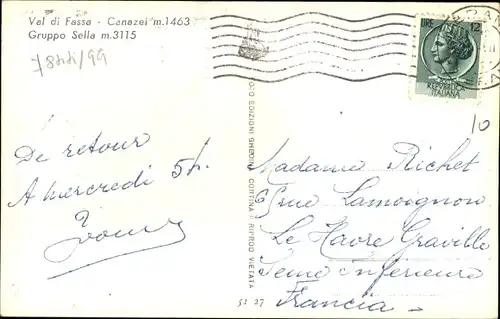 Val di Fassa - Canazei m.1463
Gruppo Sella m.3115
LIRE 12
REPVBBLICA
ITALIANA
10
De retour
A mercredi 5h.
Madame Richet
rue Lamoignon
Le Havre Graville
Seine inferieure
Francia
EDIZIONI GHEDINA - CORTINA - RIPROD. VIETATA
52 27